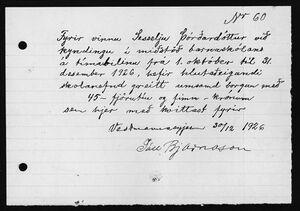 No 60
Fyrir vinnu Sesselju Þórðardóttur við
kyndingu í miðstöð barnaskólans
á tímabilinu frá 1. október til 31.
desember 1926, hefir hlutaðeigandi
skólanefnd greitt umsamið borgun með
45 - fjörutíu og fimm - krónum
sem hjer með kvittast fyrir
Vestmannaeyjum 30/12 1926
Páll Bjarnason